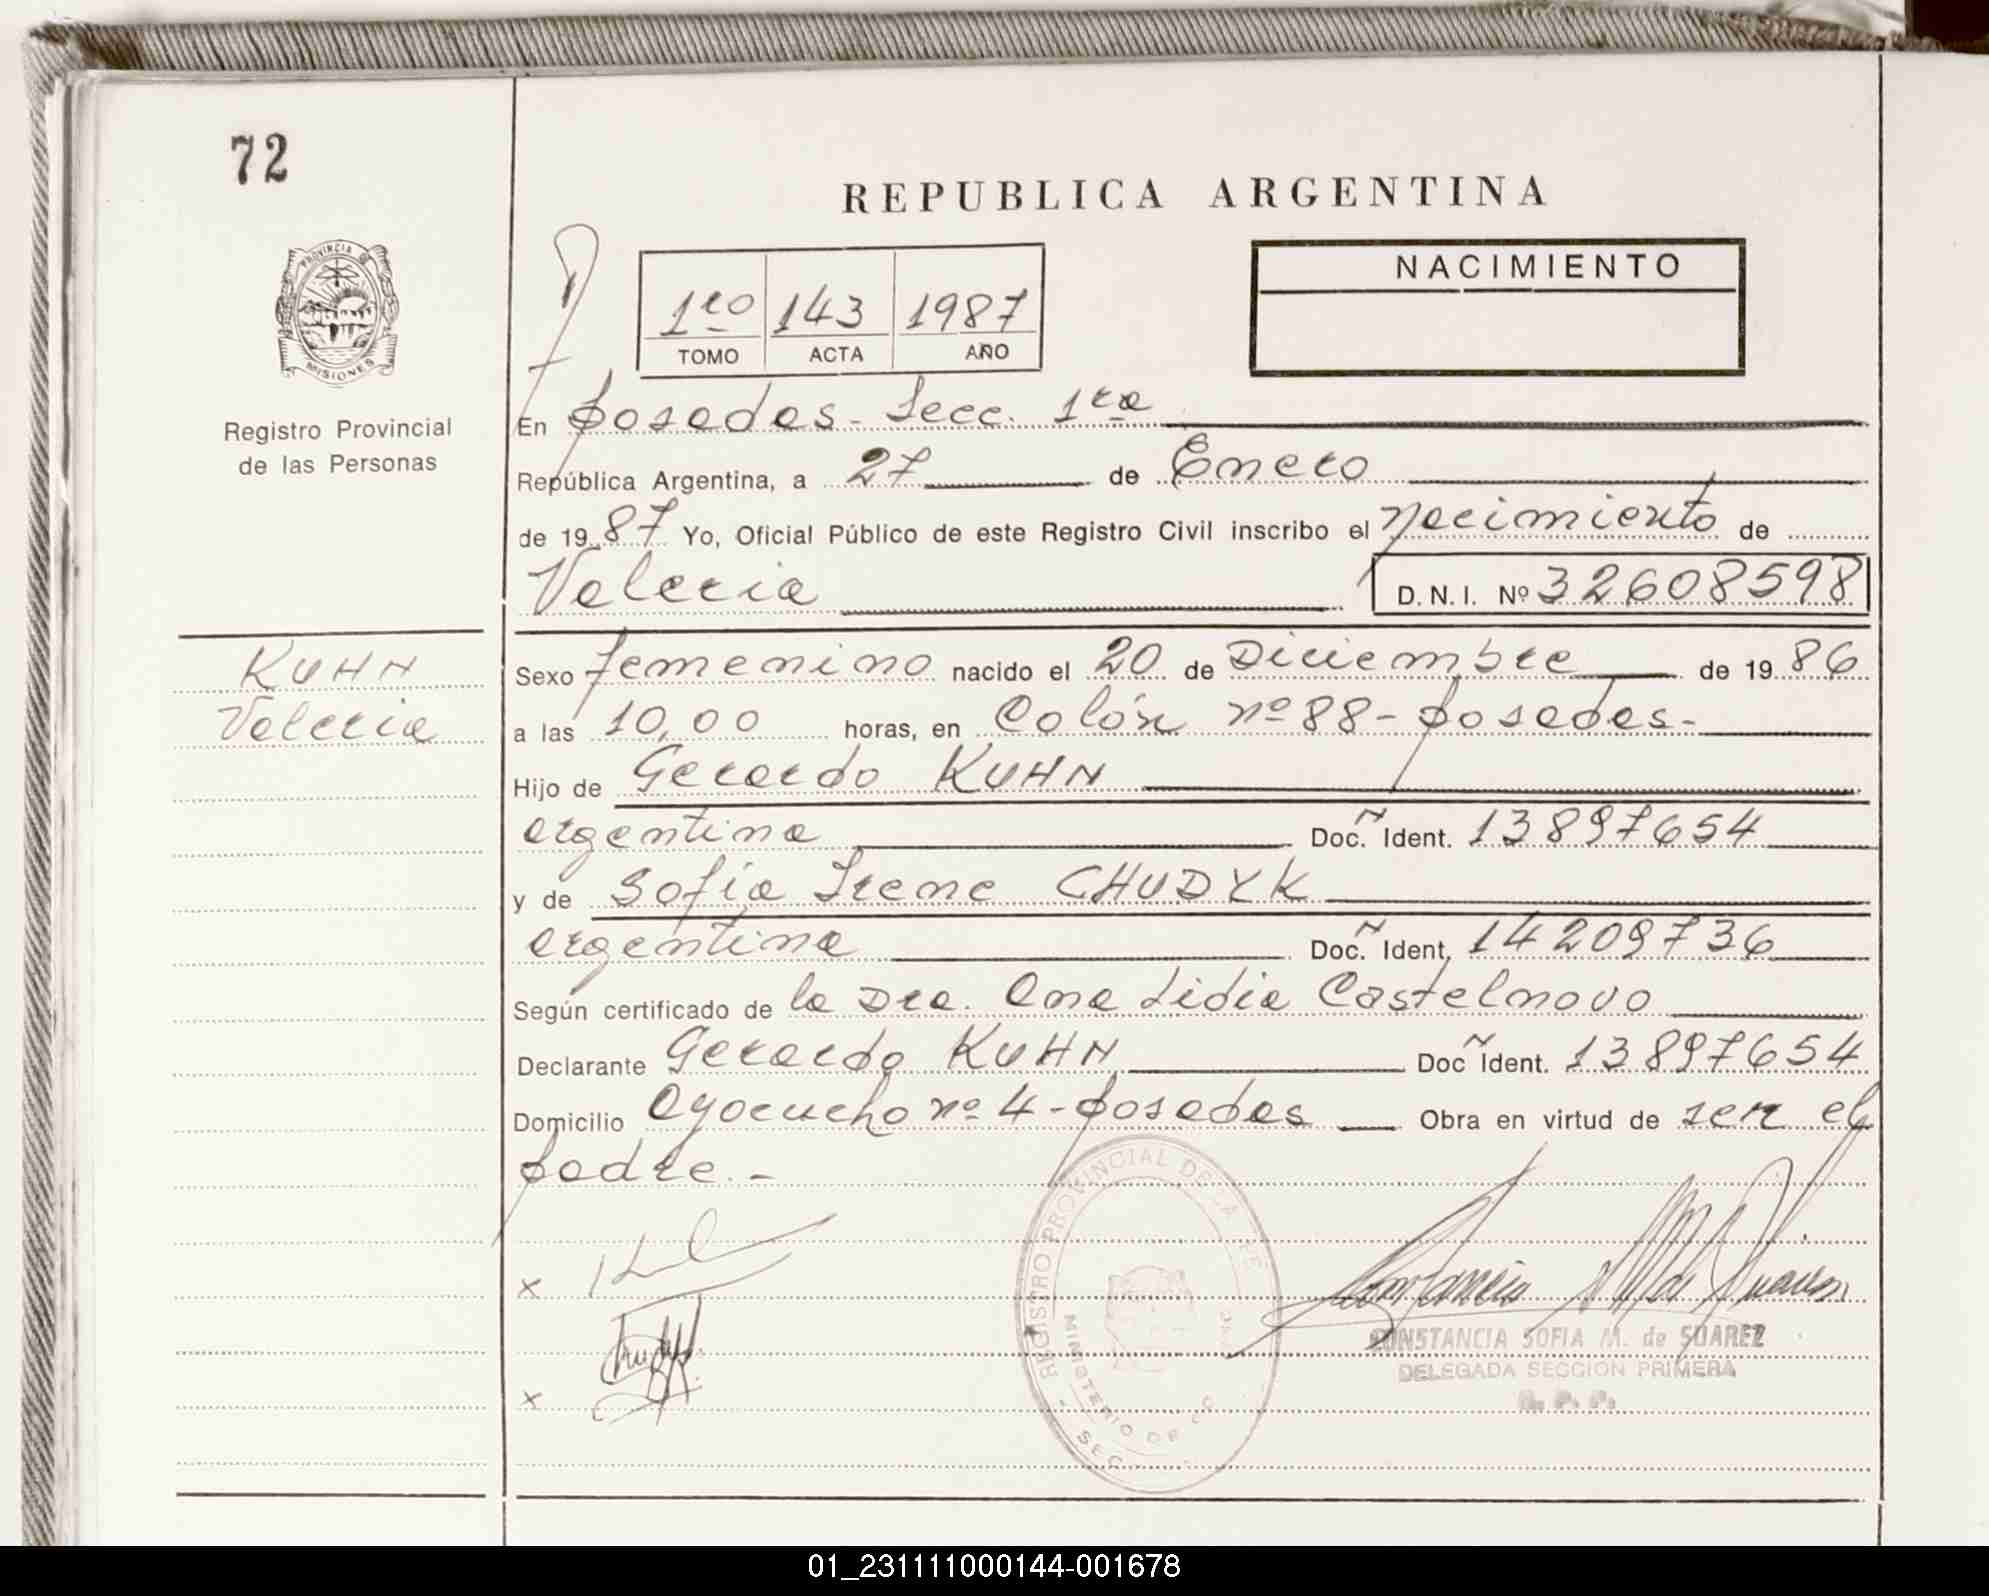 72
REPUBLICA ARGENTINA
PROVINCIA DE
MISIONES
Registro Provincial
de las Personas
1ro 143 1987
TOMO ACTA AÑO
NACIMIENTO
En Posadas - Secc. 1ra
República Argentina, a 27 de Enero
de 1987 Yo, Oficial Público de este Registro Civil inscribo el nacimiento de
Valeria D.N.I. Nº 32608598
KUHN
Valeria
Sexo femenino nacido el 20 de Diciembre de 1986
a las 10,00 horas, en Colón nº 88 - Posadas-
Hijo de Gerardo KUHN
argentina Doc. Ident. 13897654
y de Sofía Irene CHUDYK
argentina Doc. Ident. 14209736
Según certificado de la Dra. Ana Lidia Castelnovo
Declarante Gerardo KUHN Doc Ident. 13897654
Domicilio Ayacucho nº 4 - Posadas Obra en virtud de ser el
padre.-
x
x
REGISTRO PROVINCIAL DE LA PE
MINISTERIO DE
SEC
CONSTANCIA SOFIA M. de SUAREZ
DELEGADA SECCION PRIMERA
R. P. P.
01_231111000144-001678